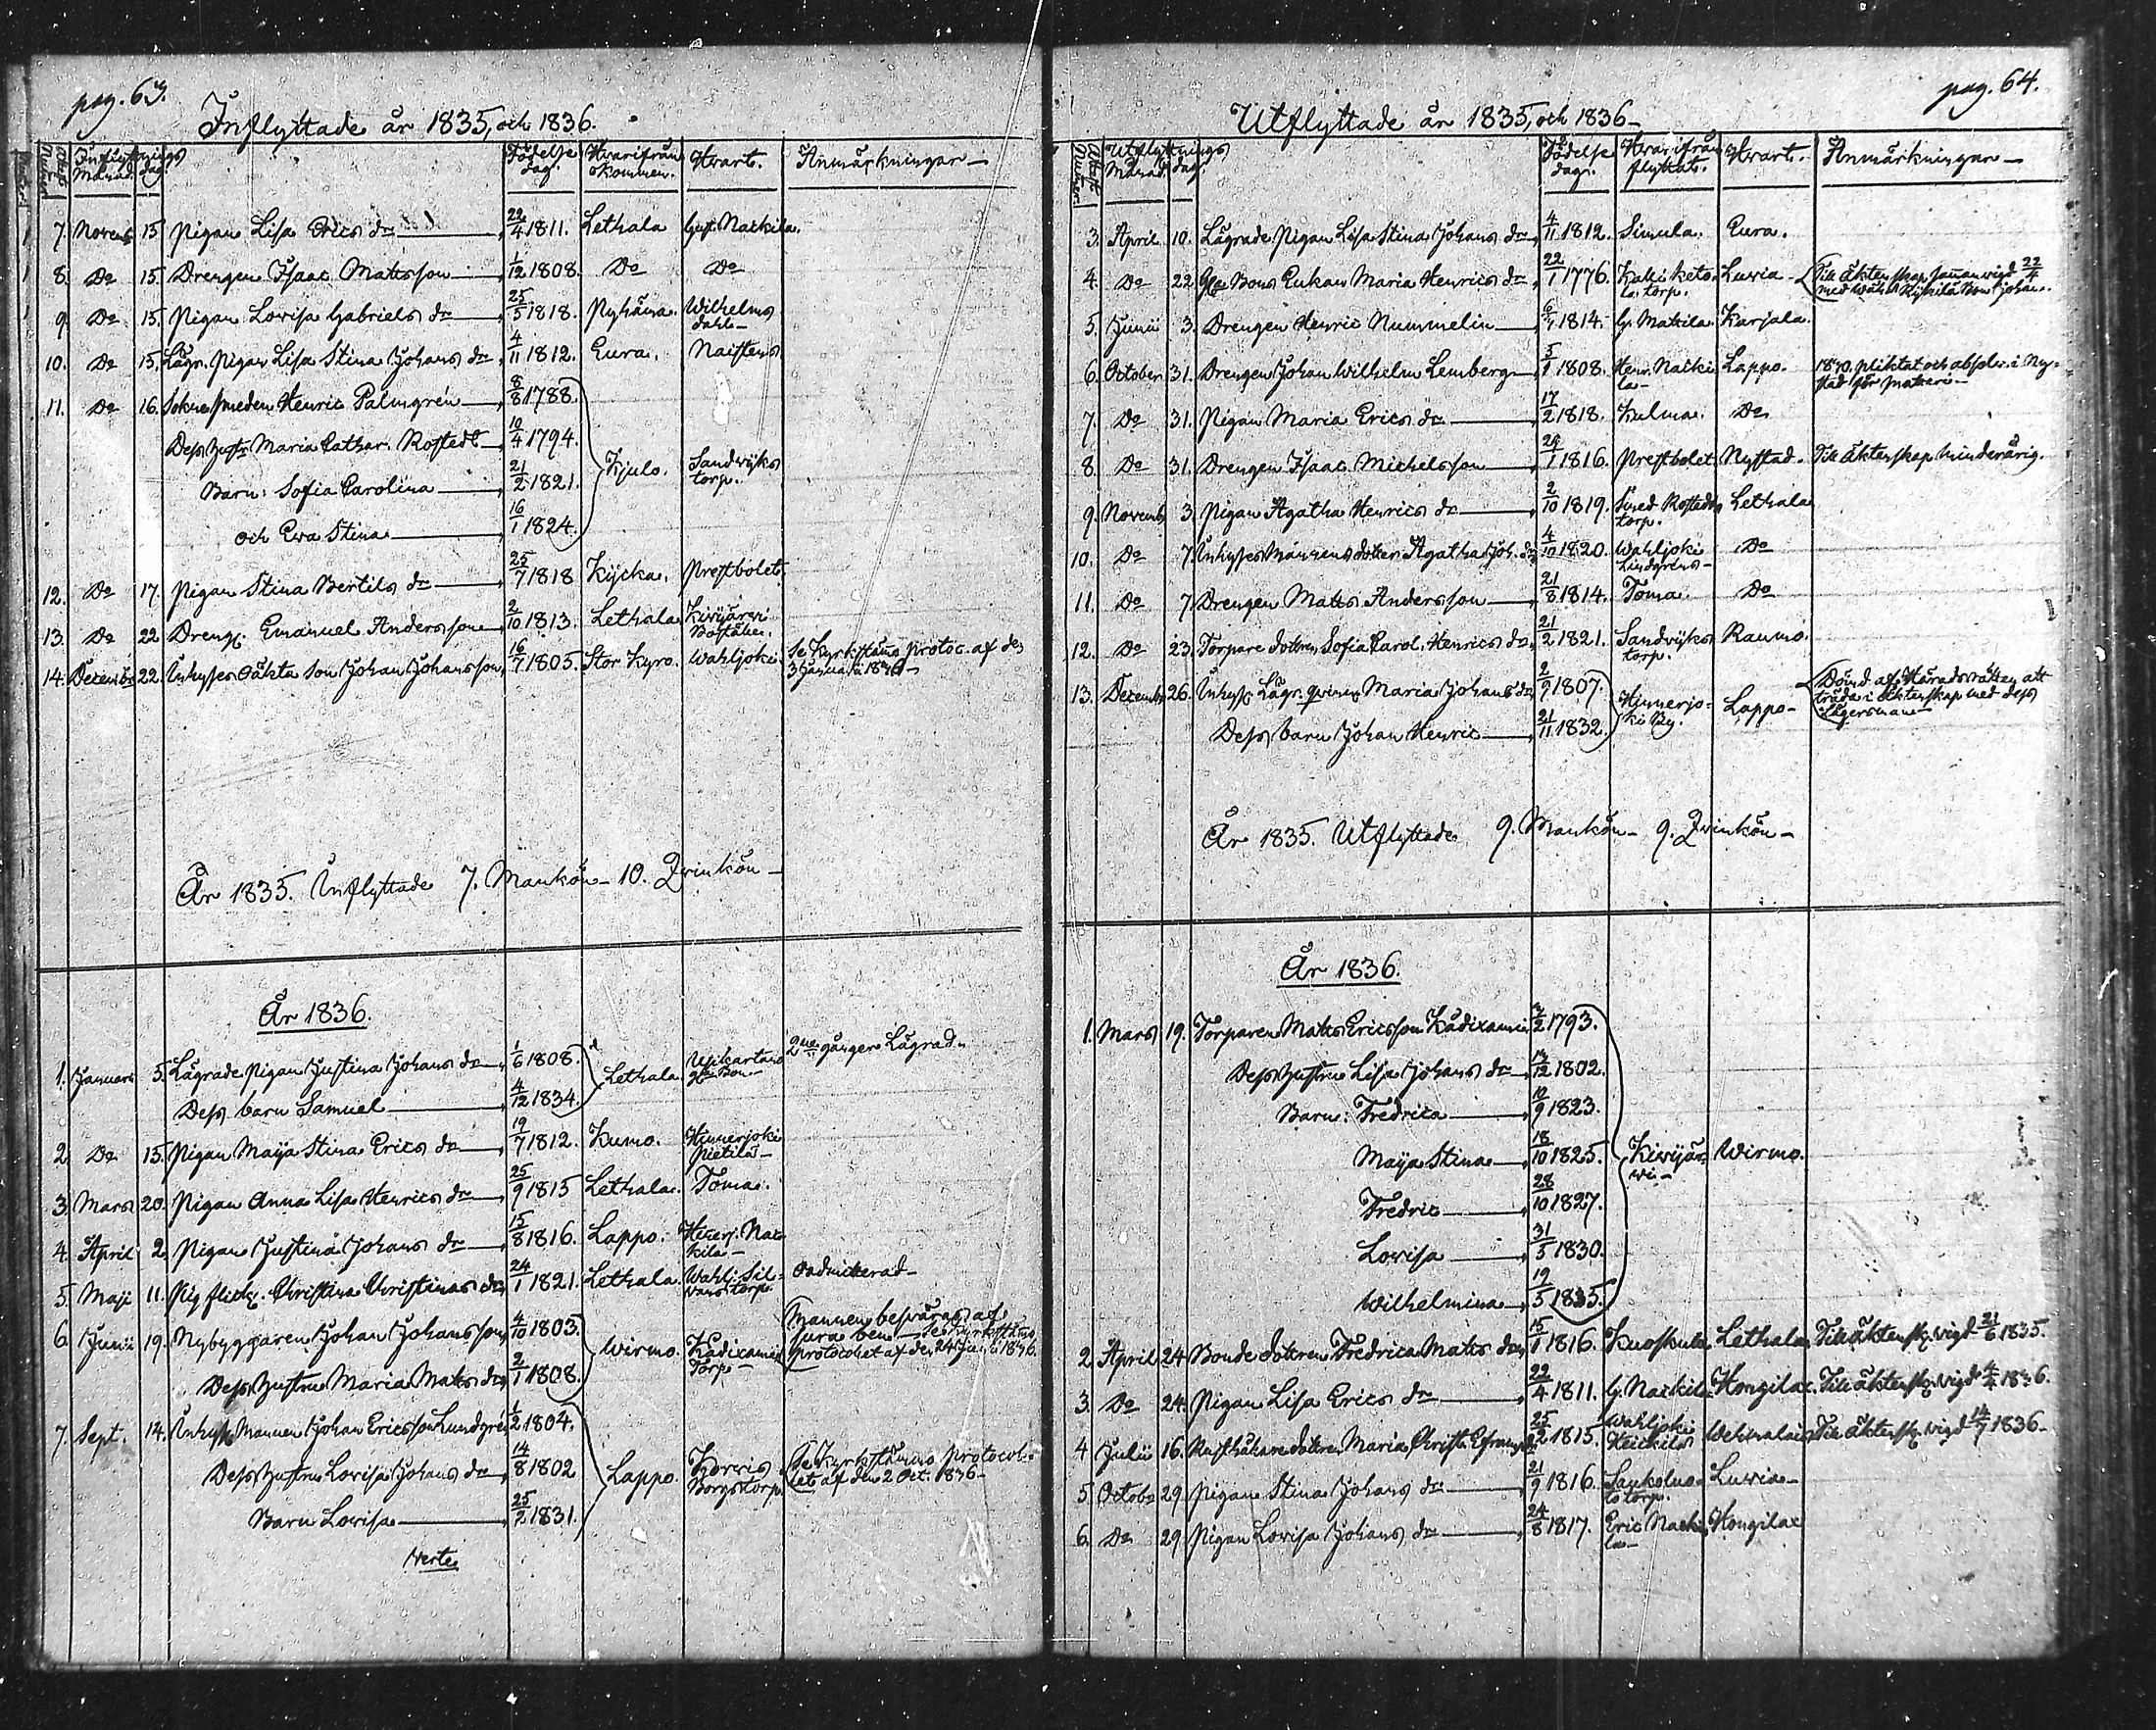 pag. 63.
Inflyttade år 1835, och 1836.
Inflyttnings Månad. dag. Födelse dag. Hvarifrån kommen. Hvart. Anmärkningar
7. Novemb. 15. Pigan Lisa Erics dr 22/4 1811. Lethala Gust. Naikila.
8. Do 15. Drengen Isaac Mattsson 1/12 1808. Do Do
9. Do 15. Pigan Lovisa Gabriels dr 25/5 1818. Pyhäma. Wilhelms
dahl
10. Do 15. Lägr. Pigan Lisa Stina Johans dr 4/11 1812. Eura. Naistens
11. Do 16. Sokne smeden Henric Palmgrén 8/8 1788.
Dess hustr. Maria Cathar. Rostedt 10/4 1794. Kjulo. Sandwijks
torp.
Barn: Sofia Carolina 21/2 1821.
och Ewa Stina 16/1 1824.
12. Do 17. Pigan Stina Bertils dr 25/7 1818 Kijcka. Prestbolet.
13. Do 22 Drengs. Emanuel Andersson 2/10 1813. Lethala Kivijärvi
Boställe.
14. December 22. Inhyses Oäkta son Johan Johansson 16/7 1805. Stor Kyro. Wahljoki. Se Kyrkstäms protoc. af den
3 Januarii 1836
År 1835. Inflyttade 7. Mankön 10. Qvinkön
År 1836.
1. Januari 5. Lägrade Pigan Justina Johans dr 1/6 1808. Lethala 2ne gånger Lägrad.
Dess barn Samuel 4/12 1834.
2. Do 15. Pigan Maija Stina Erics dr 19/7 1812. Kumo. Hinnerjoki
Pietilä
3. Mars 20. Pigan Anna Lisa Henrics dr 25/9 1815 Lethala. Toma.
4. April 2. Pigan Justina Johans dr 15/8 1816. Lappo. Hinerj. Nai
kila
5. Maji 11. Pig flick. Christina Christinas dr 24/1 1821. Lethala. Wahlj. Sil
vans torp. Oadmitterad
6. Junii 19. Nybyggaren Johan Johansson 4/10 1803. Wirmo. Kadixamin
Torp Mannen besväras af
sura ben se Kyrkstäms
protocollet af den 24 Juli 1836.
Dess hustru Maria Mats dr 2/1 1808.
7. Sept. 14. Inhyss Mannen Johan Ericsson Lundgrén 1/2 1804.
Dess hustru Lovisa Johans dr 14/8 1802 Lappo. Korvis
Borgs torp. Se Kyrkstämmo Protocol
let af den 2 Oct. 1836
Barn Lovisa 25/2 1831.
Verte
pag. 64.
Utflyttade år 1835, och 1836
Utflyttnings Månad. dag. Födelse dag. Hvarifrån flyttat. Hvart. Anmärkningar
3. April 10. Lägrade Pigan Lisa Stina Johans dr 4/11 1812. Simula. Eura.
4. Do 22. Gla Bons Enkan Maria Henrics dr 22/1 1776. Kalliketo
la torp. Luvia Till äktenskap samman wigd 22/4
5. Junii 3. Drengen Henric Nummelin 6/7 1814. G. Maikila Karjala.
6. October 31. Drengen Johan Wilhelm Lemberg 5/1 1808. Henr. Naiki
la Lappo. 1840. pliktat och absolv. i Ny
stad för
7. Do 31. Pigan Maria Erics dr 17/2 1818. Kulma. Do
8. Do 31. Drengen Isaac Michelsson 29/1 1816. Prestbolet Nystad. Till äktenskap minderårig.
9. Novemb. 3. Pigan Agatha Henrics dr 2/10 1819. Smed Rosteds
torp. Lethala
10. Do 7. Inhyses Mannens dotter Agatha Joh. dr 4/10 1820. Wahljoki
Lindgréns Do
11. Do 7. Drengen Matts Andersson 21/8 1814. Toma. Do
12. Do 23. Torpare dottren Sofia Carol. Henrics dr 21/2 1821. Sandvijks
torp. Raumo.
13. December 26. Inhyss Lägr. qvinna Maria Johans dr 2/9 1807. Hinnerjo
ki By. Lappo Dömd af Häradsrätten att
träda i äktenskap med dess
Lägersman
Dess barn Johan Henric 21/11 1832.
År 1835. Utflyttade 9. Mankön 9. Qvinkön
År 1836.
1. Mars 19. Torparen Matts Ericsson Kadixamin 2/2 1793.
Dess hustru Lisa Johans dr 13/12 1802.
Barn: Fredrica 10/9 1823.
Maija Stina 18/10 1825. Kivijär
vi Wirmo.
Fredric 28/10 1827.
Lovisa 31/5 1830.
Wilhelmina 19/5 1835.
2. April 24 Bonde dottren Fredrica Matts dr 15/1 1816. Kuoskula Lethala Till äktensk. wigd 21/6 1835.
3. Do 24. Pigan Lisa Erics dr 22/4 1811. G. Naikila Hongila. Till äktensk. wigd 4/4 1836.
4 Julii 16. Rusthållare dottren Maria Christ. Efraims dr 25/12 1815. Wahljoki
Heickilä Till äktensk. wigd 14/7 1836
5. Octobr 29 Pigan Stina Johans dr 21/9 1816. Luvia
6. Do 29 Pigan Lovisa Johans dr 24/8 1817. Eric Naiki
la Hongila